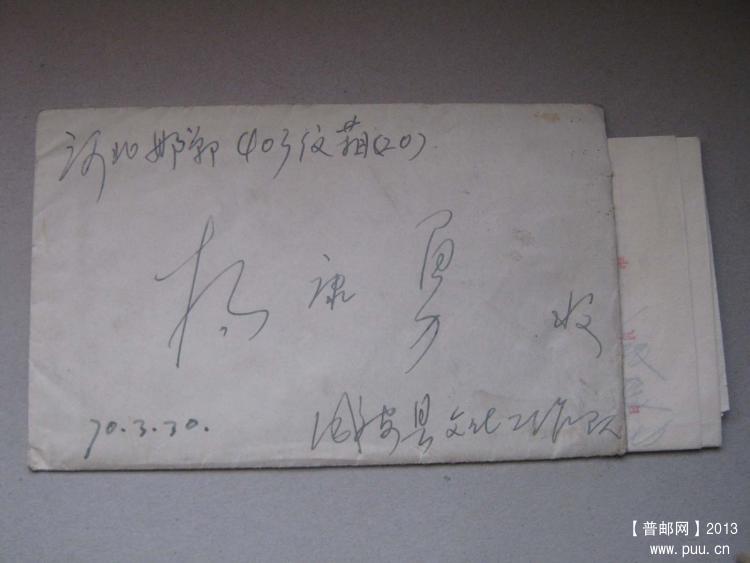 河北邯郸403信箱(20)
杨康勇 收
70.3.30.
县文化工作队
【普邮网】2013
www.puu.cn